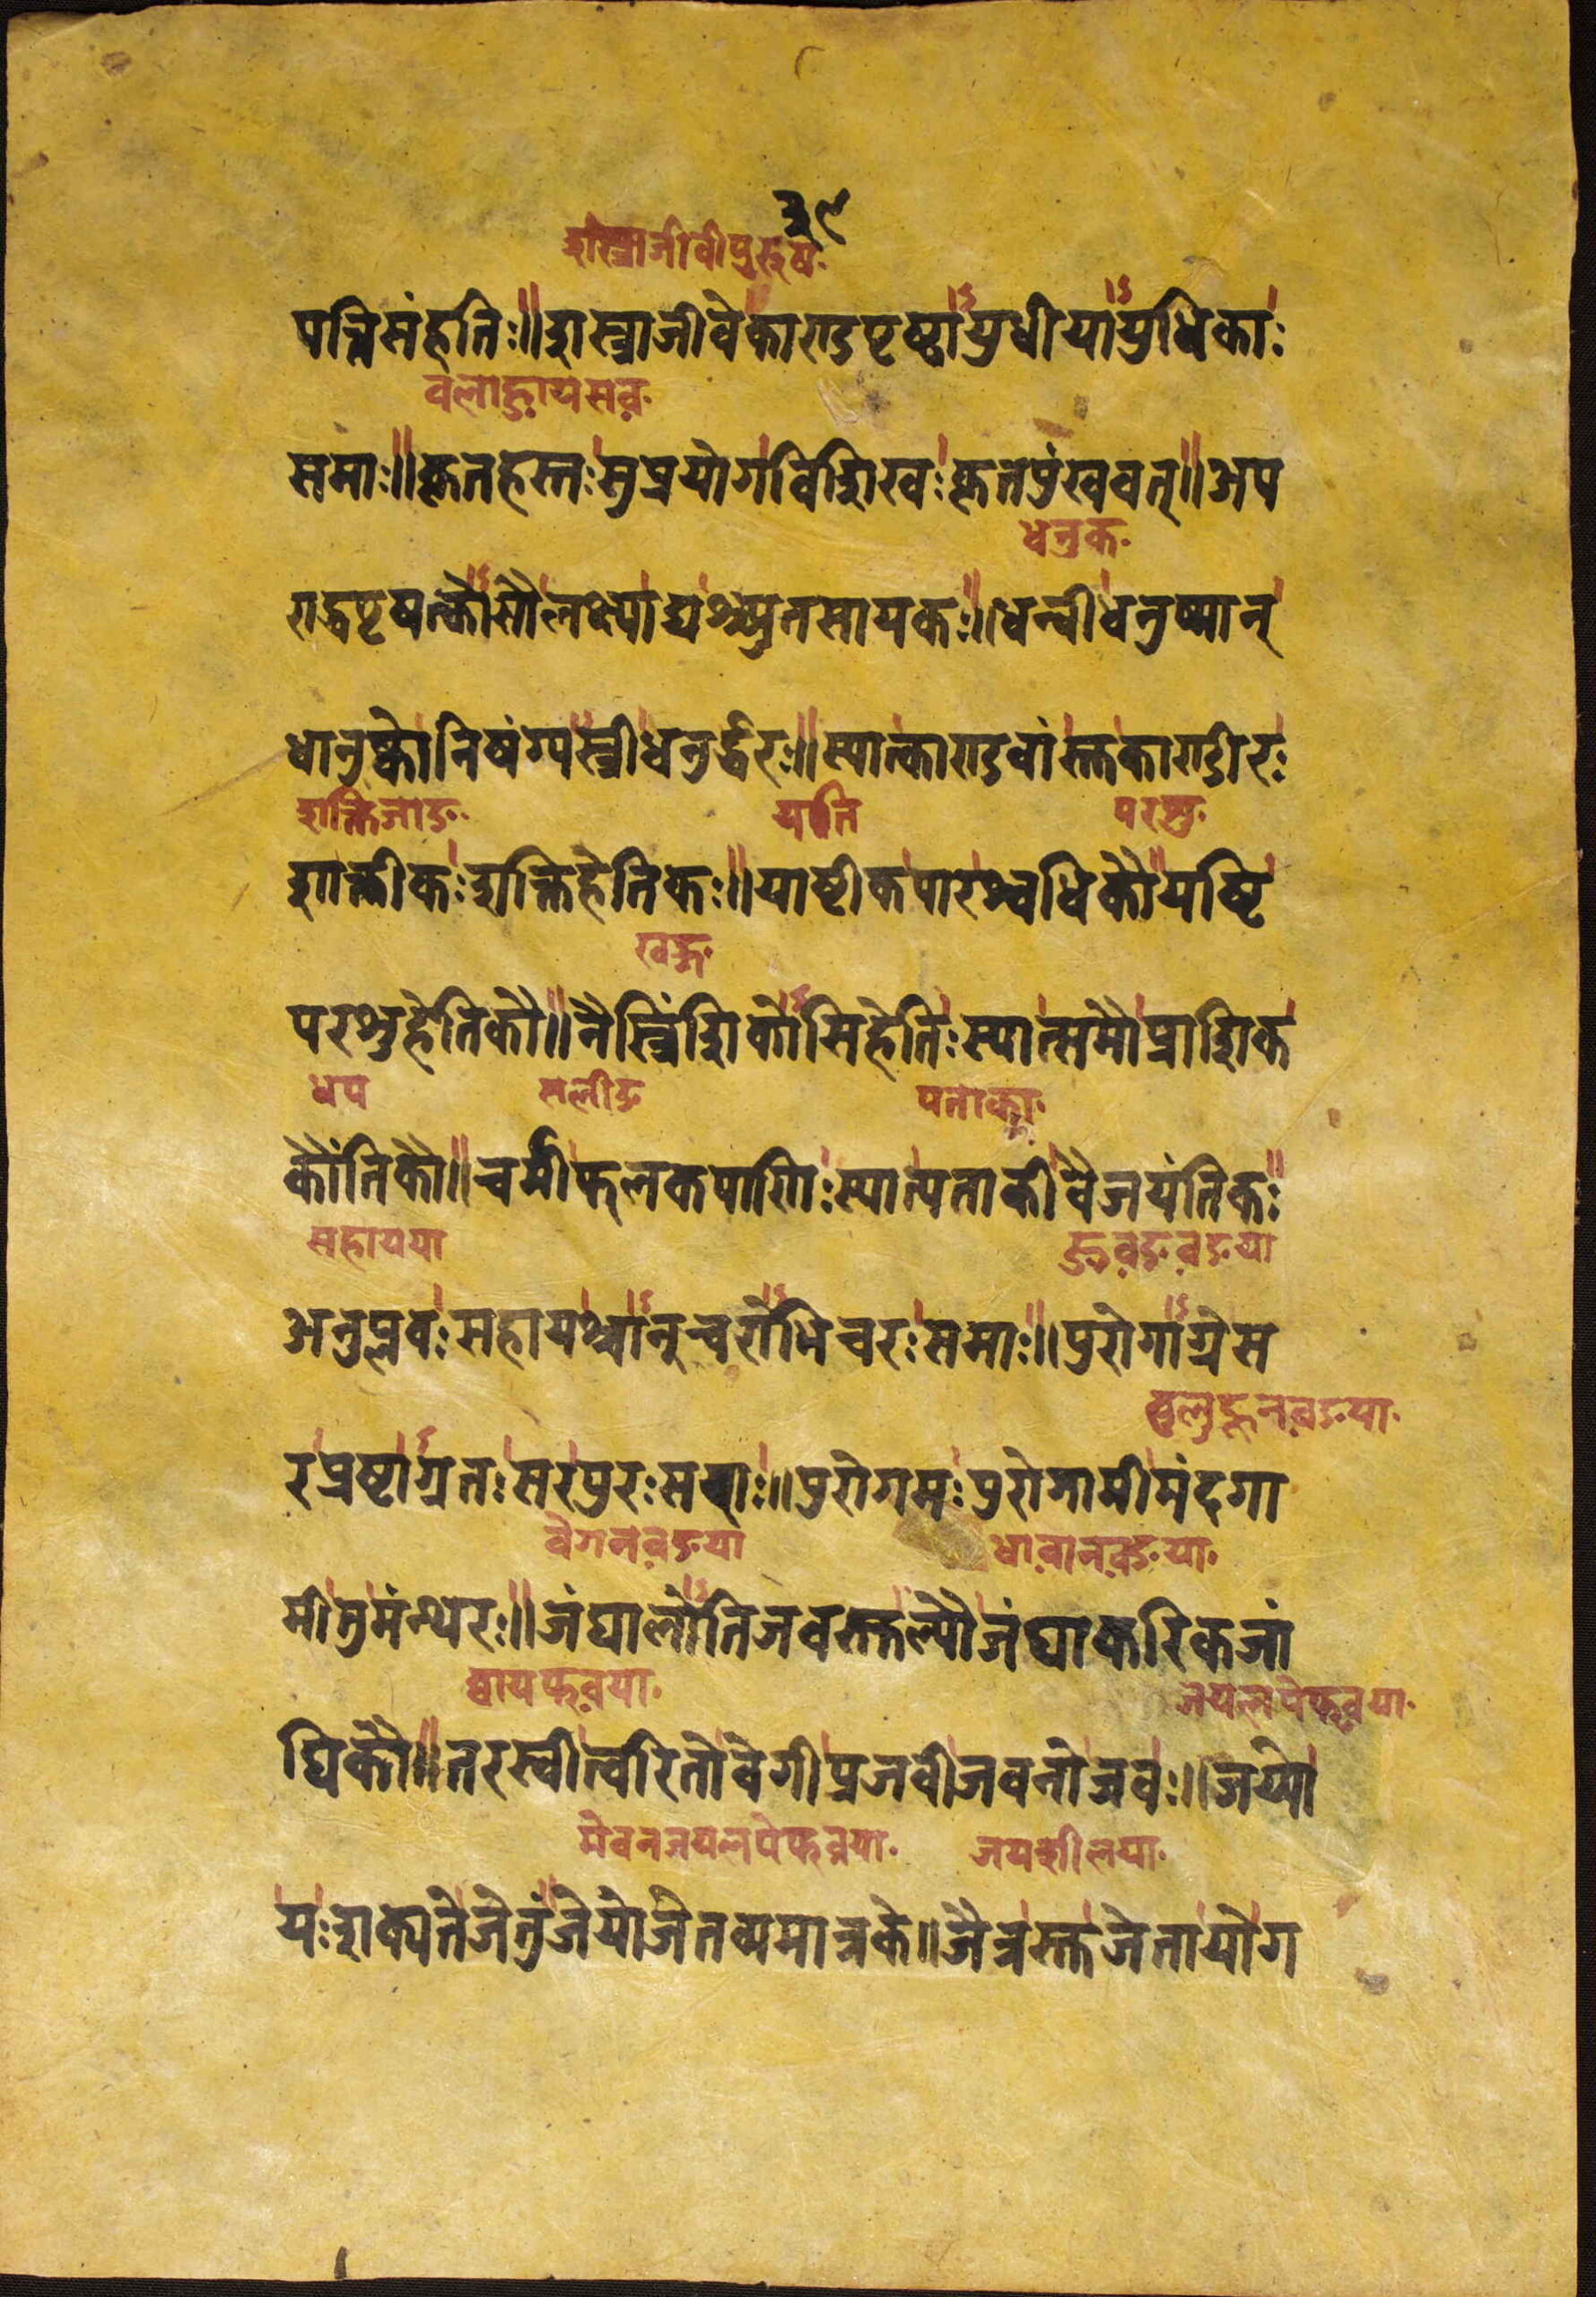 ३९
शस्त्राजीवीपुरुष.
पत्तिसंहतिः॥शस्त्राजीवेकाराडपृष्ठाऽयुधीयाऽयुधिकाः
वलाह्नायसव.
समाः॥कृतहस्तःसुप्रयोगविशिखःकृतपुंखवत्॥अप
धनुक.
राद्धपृषत्कोऽसौलक्ष्याद्यश्च्युतसायकः॥धन्वीधनुष्मान्
धानुष्कोनिषंग्यस्त्रीधनुर्द्धरः॥स्यात्काराडवांस्तुकाराडीरः
शक्तिजोङ. यति परशु.
शाक्तीकःशक्तिहेतिकः॥याष्टीकपारश्वधिकौयष्टि
खड्ग.
परशुहेतिकौ॥नैस्त्रिंशिकोऽसिहेतिःस्यात्समौप्राशिक
धप पताका.
कौंतिकौ॥चर्मीफलकपाणिःस्यात्पताकीवैजयंतिकः॥
सहायया
अनुप्लवःसहायश्चाऽनुचरोऽभिचरःसमाः॥पुरोगाऽग्रेस
रप्रष्टाऽग्रतःसरपुरःसराः॥पुरोगमःपुरोगामीमंदगा
वेगनवङया धावानवङया.
मीतुमंन्थरः॥जंघालोऽतिजवस्तुल्यौजंघाकरिकजां
ब्वायफवया. जयलपेफवया.
घिकौ॥तरस्वीत्वरितोवेगीप्रजवीजवनोजवः॥जय्यो
मेवनजयलपेफवया. जयशीलया.
यःशक्यतेजेतुंजेयोजेतव्यमात्रके॥जैत्रस्तुजेतायोग